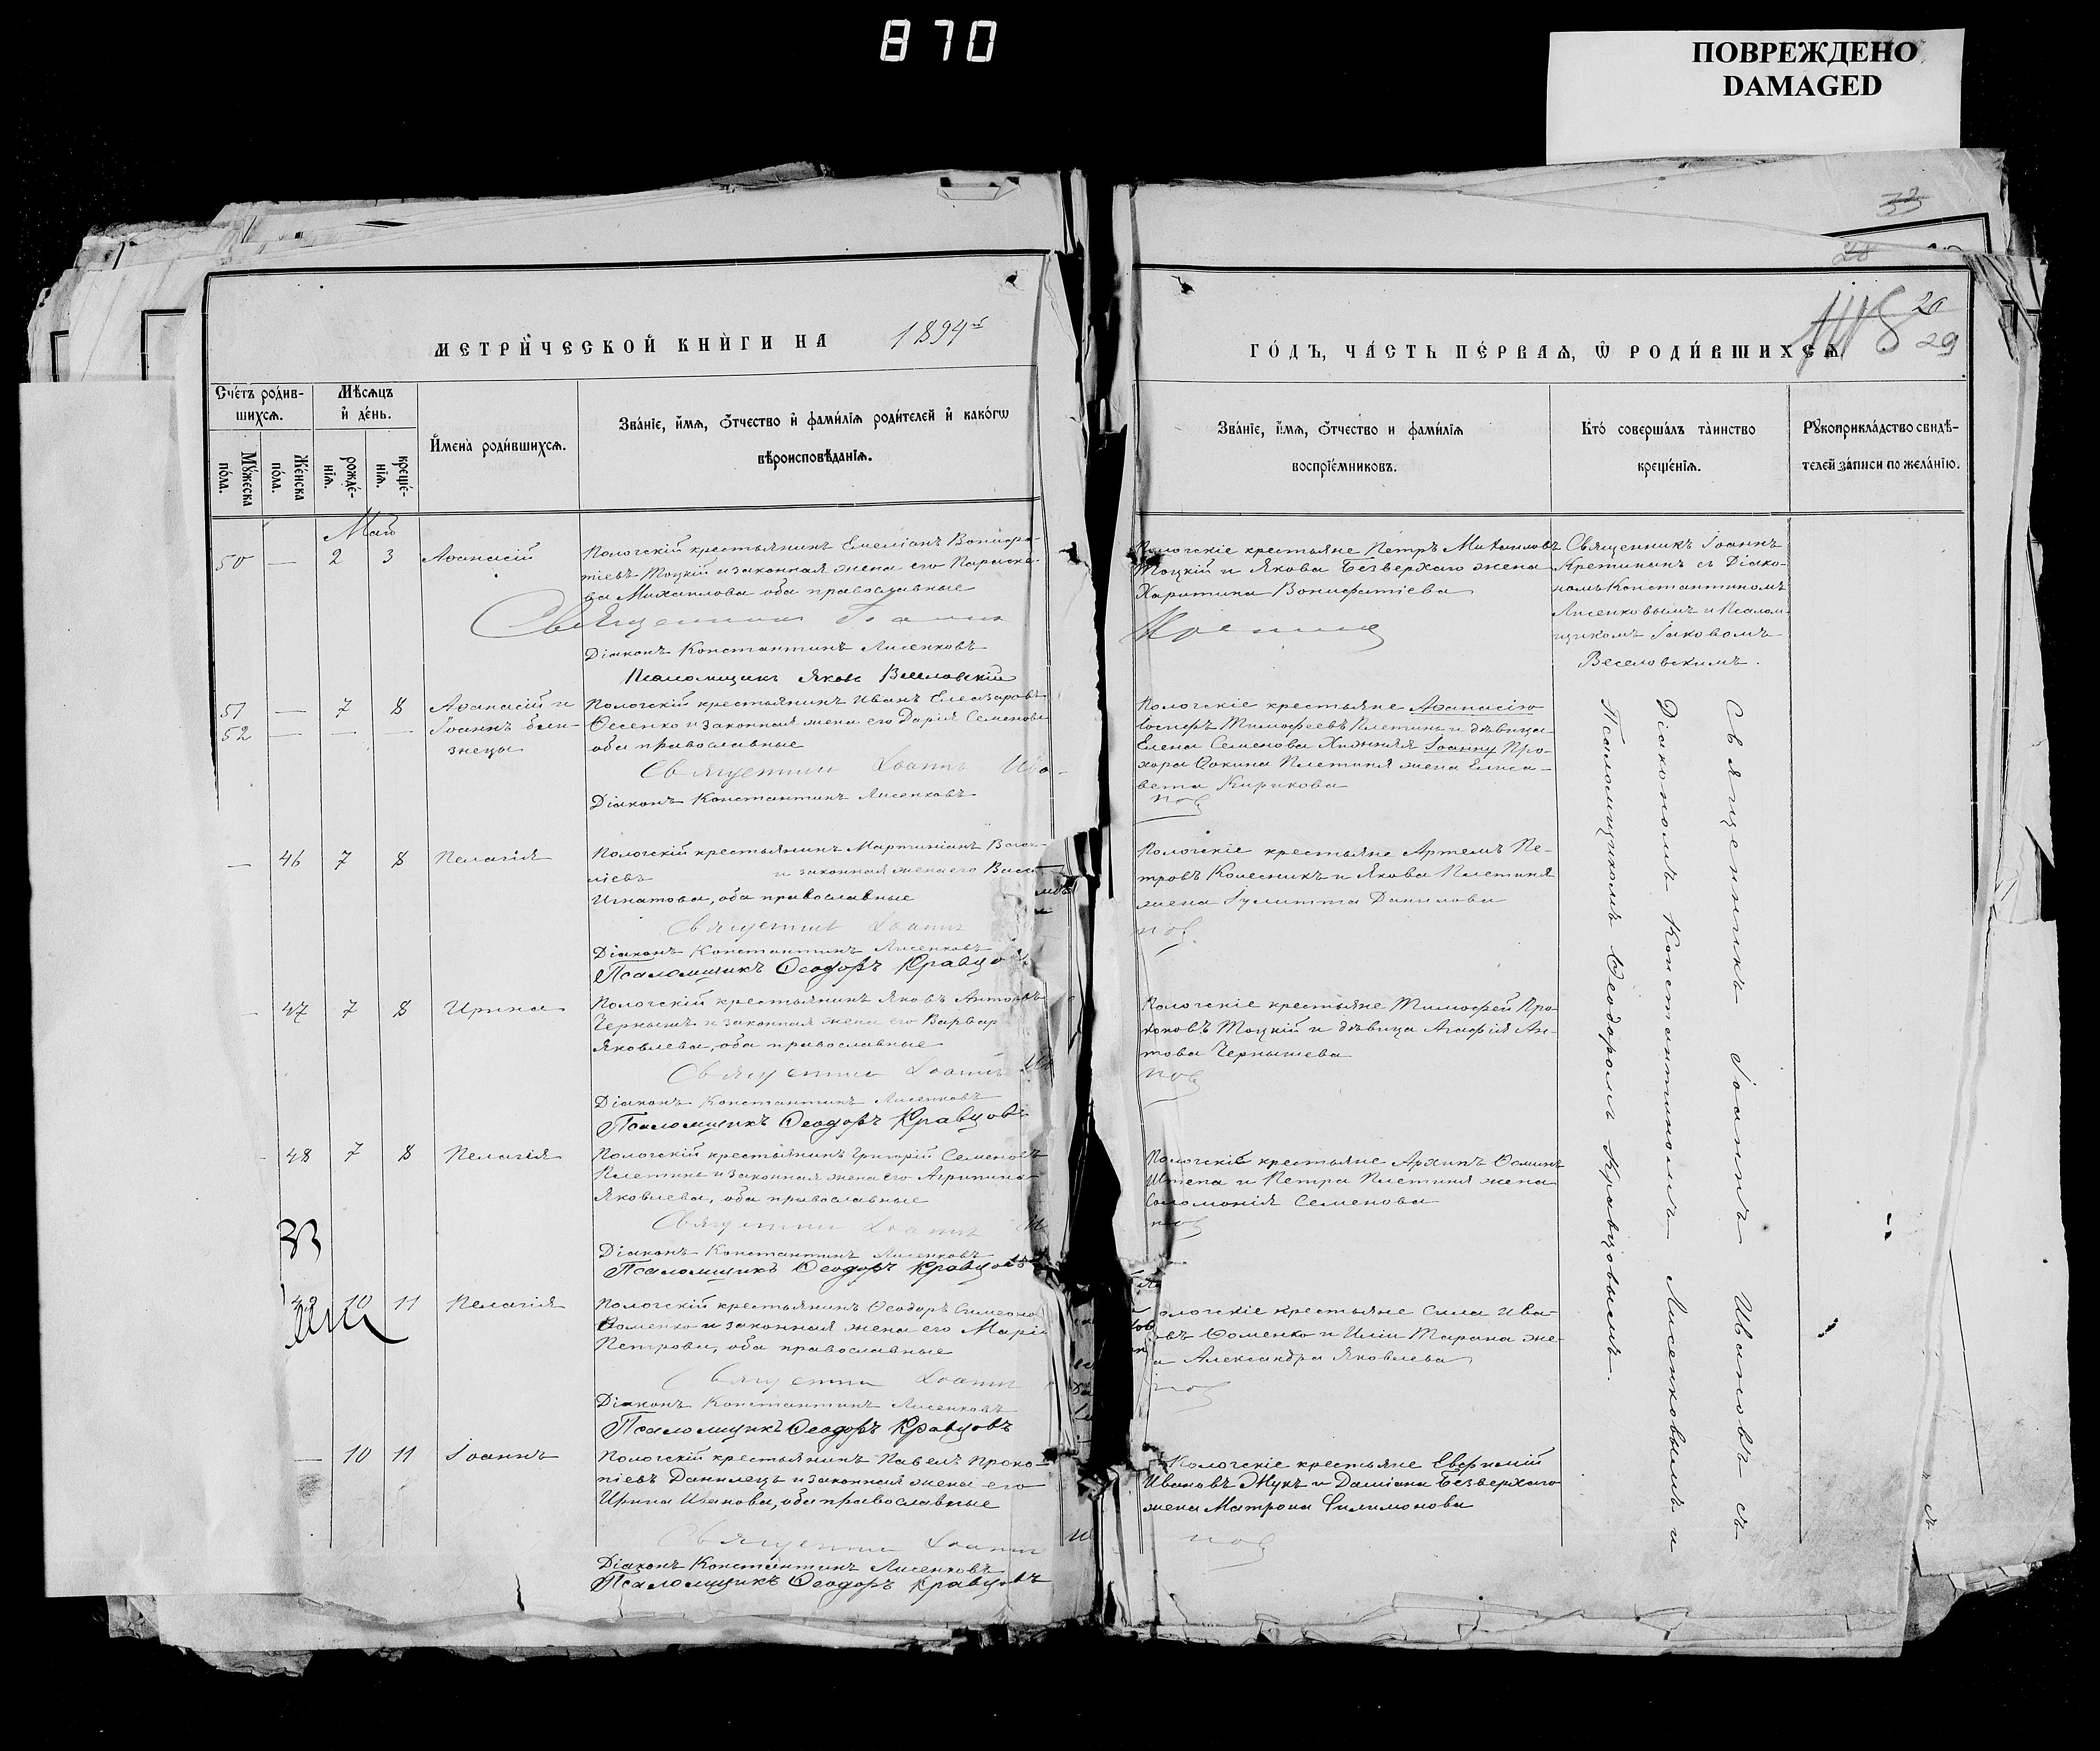 870
ПОВРЕЖДЕНО
DAMAGED
33
28
20
29
МЕТРИ́ЧЕСКОЙ КНИ́ГИ НА 1894й
ГО́ДЪ, ЧА́СТЬ ПЕ́РВАѦ, Ѽ РОДИ́ВШИХСѦ
Сче́тъ роди́в-
шихсѧ.
Мꙋ́жеска
по́ла.
Же́нска
по́ла.
Мѣ́сѧцъ
и҆ де́нь.
рожде́-
нїѧ.
креще́-
нїѧ.
И҆мена̀ роди́вшихсѧ.
Зва́нїе, и҆́мѧ, ѻ҆́тчество и҆ фами́лїѧ роди́телей и҆ како́гѡ
вѣроисповѣ́данїѧ.
Зва́нїе, и҆́мѧ, ѻ҆́тчество и фами́лїѧ
воспрїе́мниковъ.
Кто́ соверша́лъ та́инство
креще́нїѧ.
Рꙋкоприкла́дство свидѣ́-
телей за́писи по жела́нїю.
Май
50 — 2 3 Аѳанасій
Пологскій крестьянинъ Емеліанъ Вонифа-
тіевъ Тоцкій и законная жена его Параске-
ва Михаилова оба православные
Священникъ Іоаннъ
Діаконъ Константинъ Лисенковъ
Псаломщикъ Яковъ Веселовскій
Пологскіе крестьяне Петръ Михаиловъ
Тоцкій и Якова Безверхаго жена
Харитина Вонифатіева
Священникъ Іоаннъ
Арепинъ съ Діако-
номъ Константиномъ
Лисенковымъ и Псалом-
щикомъ Іаковомъ
Веселовскимъ.
51 — 7 8 Аѳанасій и
52 — — — Іоаннъ близ-
знецы
Пологскій крестьянинъ Иванъ Елеазаровъ
Ѳесенко и законная жена его Дарія Семенова
оба православные
Священникъ Іоаннъ Ива-
Діаконъ Константинъ Лисенковъ
Пологскіе крестьяне Аѳанасію
Іосифъ Тимоѳеевъ Плетинь и дѣвица
Елена Семенова Хижняя Іоанну Про-
хора Ѳокина Плетиня жена Елиса-
вета Кирикова
новъ
— 46 7 8 Пелагія
Пологскій крестьянинъ Мартиніанъ
ліевъ и законная жена его Васса
Игнатова, оба православные
Священникъ Іоаннъ
Діаконъ Константинъ Лисенковъ
Псаломщикъ Ѳеодоръ Кравцовъ
Пологскіе крестьяне Артемъ Пе-
тровъ Колесникъ и Якова Плетиня
жена Іулитта Данилова
новъ
47 7 8 Ирина
Пологскій крестьянинъ Яковъ Антоновъ
Чернышъ и законная жена его Варвар
Яковлева, оба православные
Священникъ Іоаннъ Ива
Діаконъ Константинъ Лисенковъ
Псаломщикъ Ѳеодоръ Кравцовъ
Пологскіе крестьяне Тимоѳей Про-
коповъ Тоцкій и дѣвица Агафія Ан-
това Чернышева
новъ
48 7 8 Пелагія
Пологскій крестьянинъ Григорій Семеновъ
Плетинь и законная жена его Агрипина
Яковлева, оба православные
Священникъ Іоаннъ
Діаконъ Константинъ Лисенковъ
Псаломщикъ Ѳеодоръ Кравцовъ
Пологскіе крестьяне Архипъ Ѳоминъ
Штепа и Петра Плетиня жена
Соломонія Семенова
новъ
49 10 11 Пелагія
Пологскій крестьянинъ Ѳеодоръ Симеоно
Ѳоменко и законная жена его Марі
Петрова, оба православные
Священникъ Іоаннъ
Діаконъ Константинъ Лисенковъ
Псаломщикъ Ѳеодоръ Кравцовъ
ологскіе крестьяне Сила Ива-
въ Ѳоменко и Иліи Тарана же-
а Александра Яковлева
новъ
— 10 11 Іоаннъ
Пологскій крестьянинъ Павелъ Проко-
піевъ Данилецъ и законная жена его
Ирина Иванова, оба православные
Священникъ Іоаннъ
Діаконъ Константинъ Лисенковъ
Псаломщикъ Ѳеодоръ Кравцовъ
Пологскіе крестьяне Евфимій
Ивановъ Жукъ и Даміана Безверхаго
жена Матрона Филимонова
нов
Священникъ Іоаннъ Ивановъ съ
Діакономъ Константиномъ Лисенковымъ и
Псаломщикомъ Ѳеодоромъ Кравцовымъ.